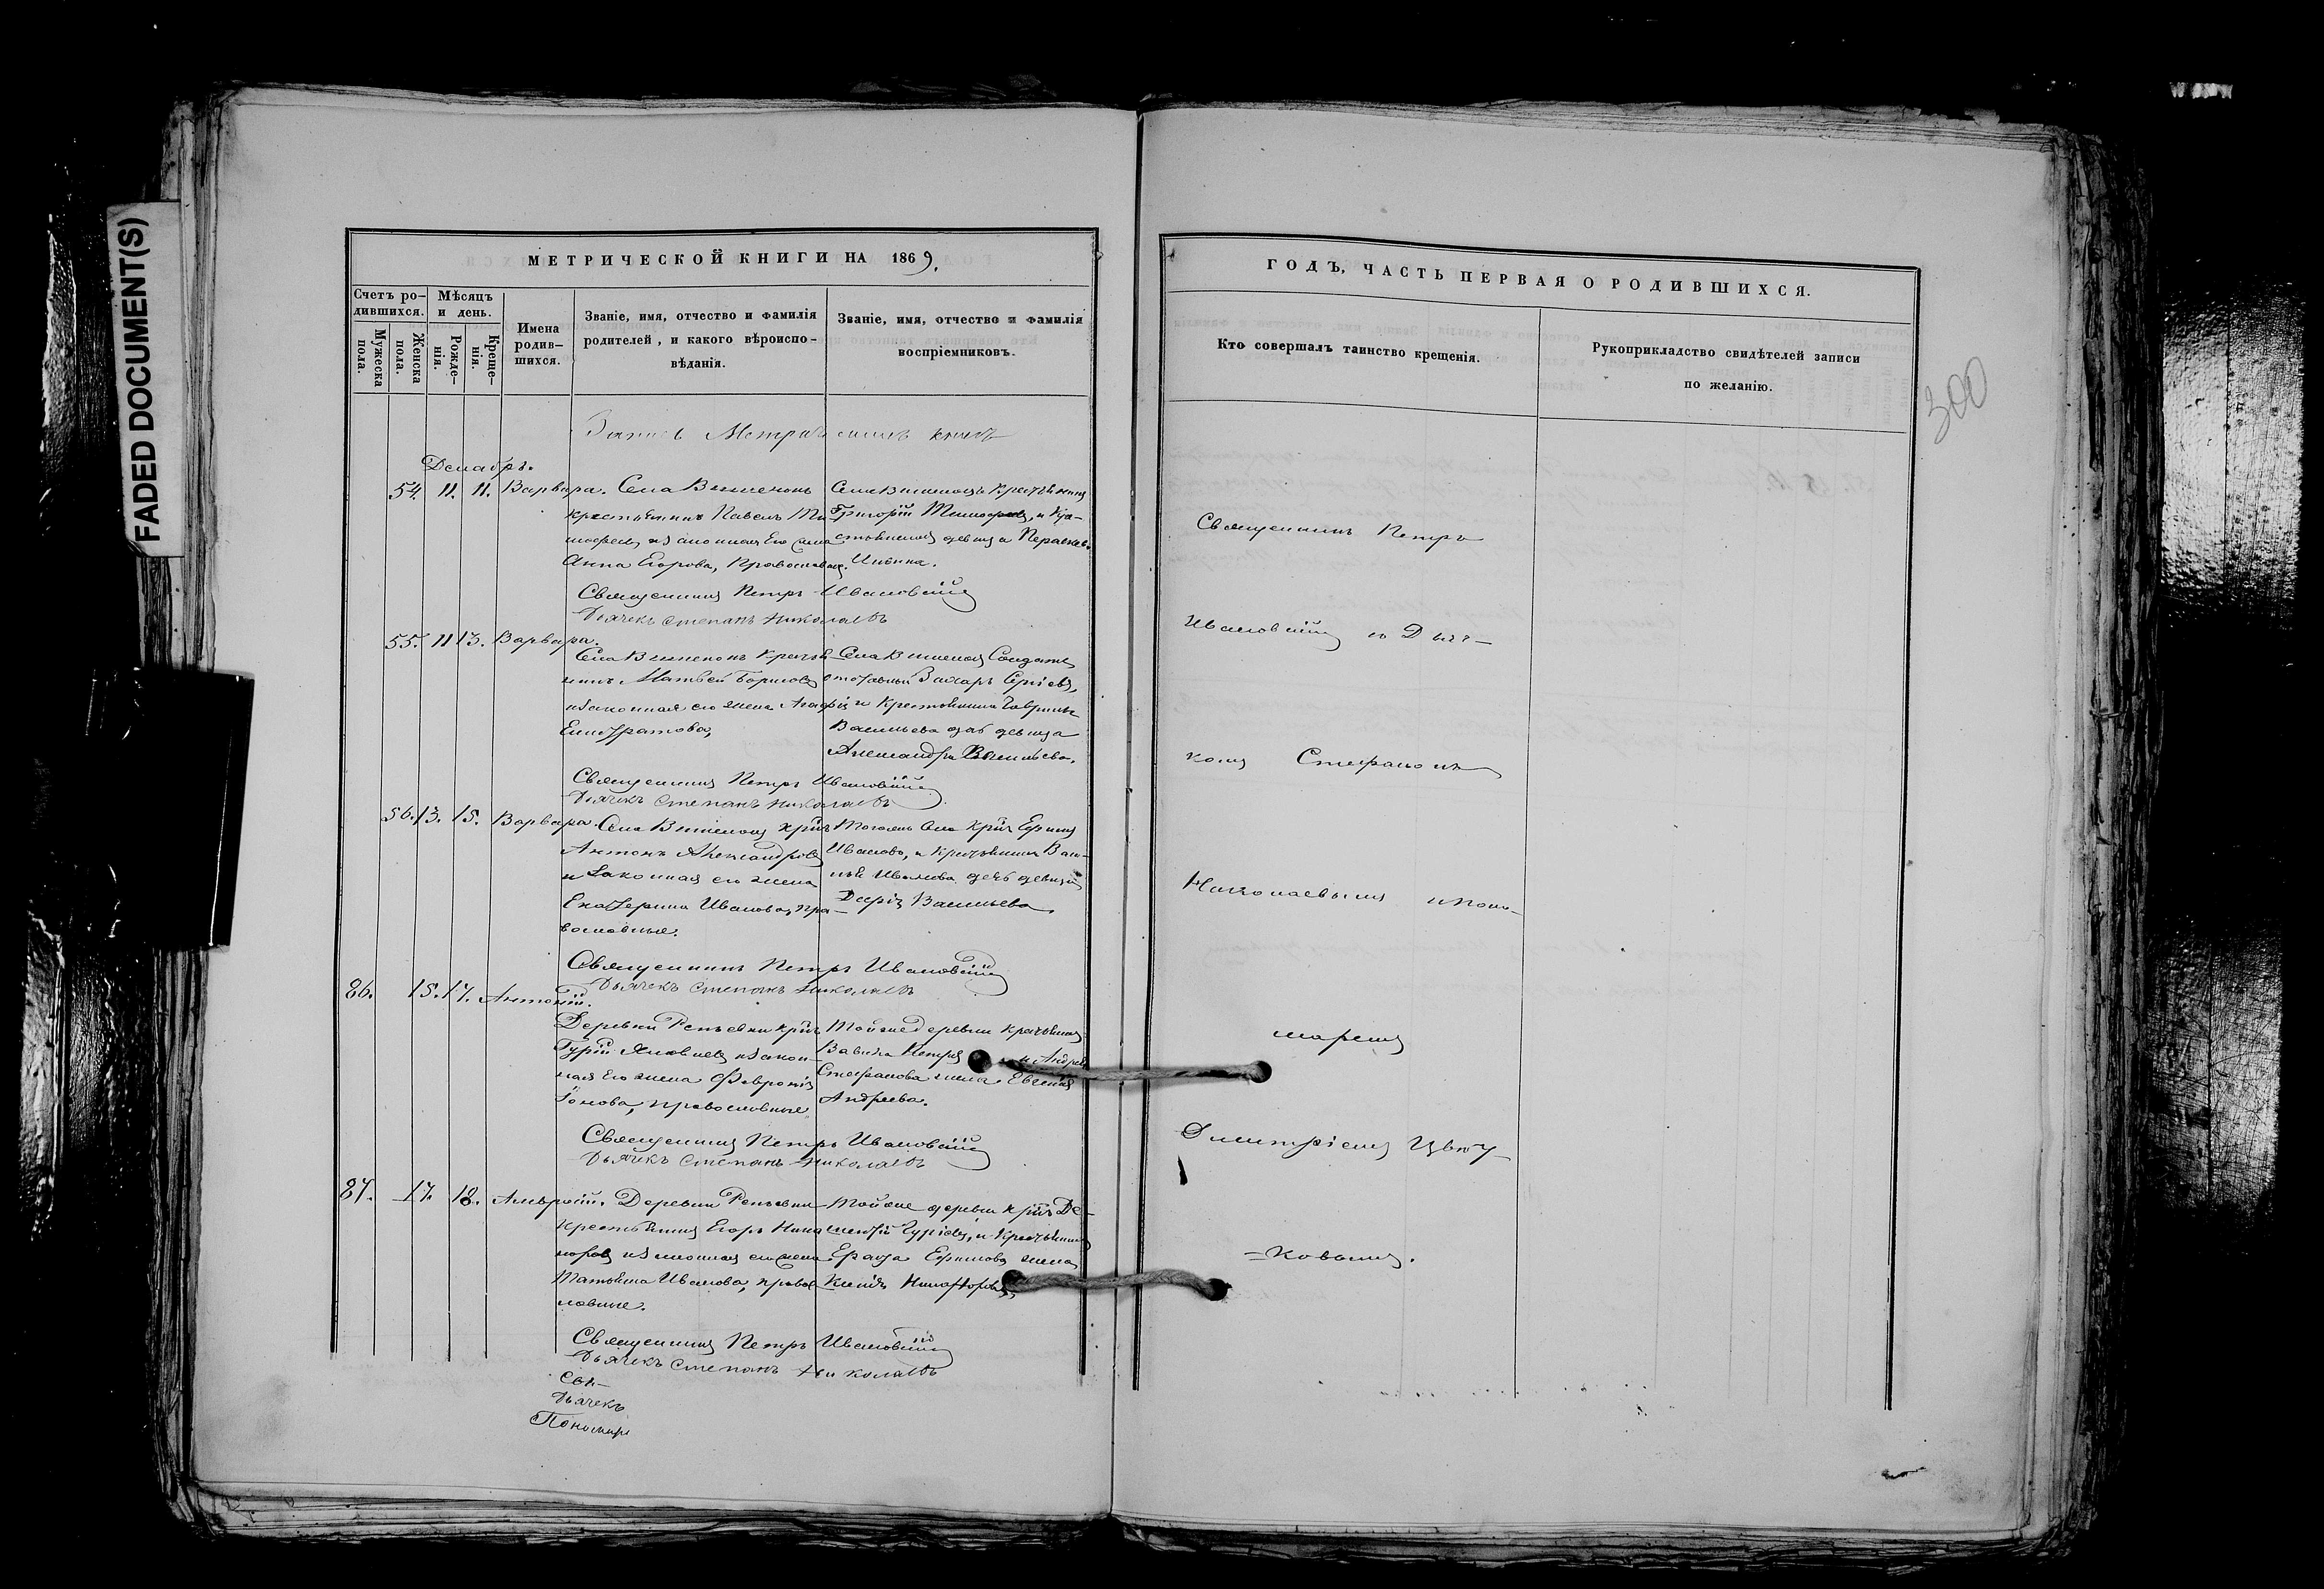 FADED DOCUMENT(S)
МЕТРИЧЕСКОЙ КНИГИ НА 1869.
Счетъ ро-
дившихся.
Мужеска
пола.
Женска
пола.
Мѣсяцъ
и день.
Рожде-
нія.
Креще-
нія.
Имена
родив-
шихся.
Званіе, имя, отчество и фамилія
родителей, и какого вѣроиспо-
вѣданія.
Званіе, имя, отчество и фамилія
воспріемниковъ.
Декабрь.
54. 11. 11. Варвара.
крестьянинъ Павелъ Ти-
мофеев, и законная Его жена
Анна Егорова, Православные.
Григорій Тимофеев, и Кре-
стьянина девица Параскев.
Священникъ Петръ Ивановскій
Дьячекъ Степанъ Николаевъ
55. 11 13. Варвара.
нинъ Матвей Борисовъ
и законная его жена Агафія
отставный Захаръ Сергіевъ,
и Крестьянина Гаврила
Васильева дочь девица
Александра Васильева.
Священникъ Петръ Ивановскій
Дьячекъ Степанъ Николаевъ
56. 13. 15. Варвара.
Антонъ Александровъ
и Законная его жена
Екатерина Иванова, пра-
вославные.
Иванова, и Крестьянина Васи-
лья Иванова дочь девица
Дарія Васильева.
Священникъ Петръ Ивановскій
Дьячекъ Степанъ Николаевъ
86. 15. 17. Антоній.
Деревни Репьевки крест.
Гурій Яковлев и закон-
ная Его жена Февронія
Іонова, православные.
Той же деревни Крестьянинъ
Вавила Петровъ и Андрея
Стефанова жена Евгенія
Андреева.
Священникъ Петръ Ивановскій
Дьячекъ Степанъ Николаевъ
87. 17. 18. Амвросій. Деревни Репьевки
Крестьянинъ Егоръ Ника-
норов и законная его жена
Татьяна Иванова, право-
славные.
Той же деревни крест. Де-
ментій Гуріевъ, и Крестьянина
Священникъ Петръ Ивановскій
Дьячекъ Степанъ Николаевъ
Свя-
Дьячекъ
Пономарь
ГОДЪ, ЧАСТЬ ПЕРВАЯ О РОДИВШИХСЯ.
Кто совершалъ таинство крещенія.
Рукоприкладство свидѣтелей записи
по желанію.
300
Священникъ Петръ
Ивановскій съ Дья-
комъ Стефаномъ
Николаевымъ и поно-
маремъ
Димитріемъ Цвѣт-
ковымъ.